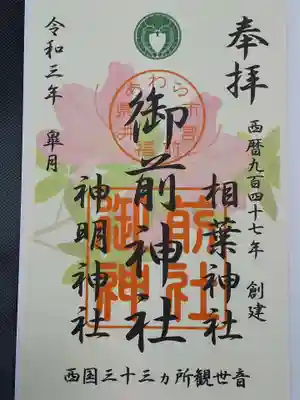 奉拝
西暦九百四十七年 創建
相葉神社
御前神社
神明神社
令和三年 皐月
福井県あわら市
前社
御神
西国三十三ヵ所観世音